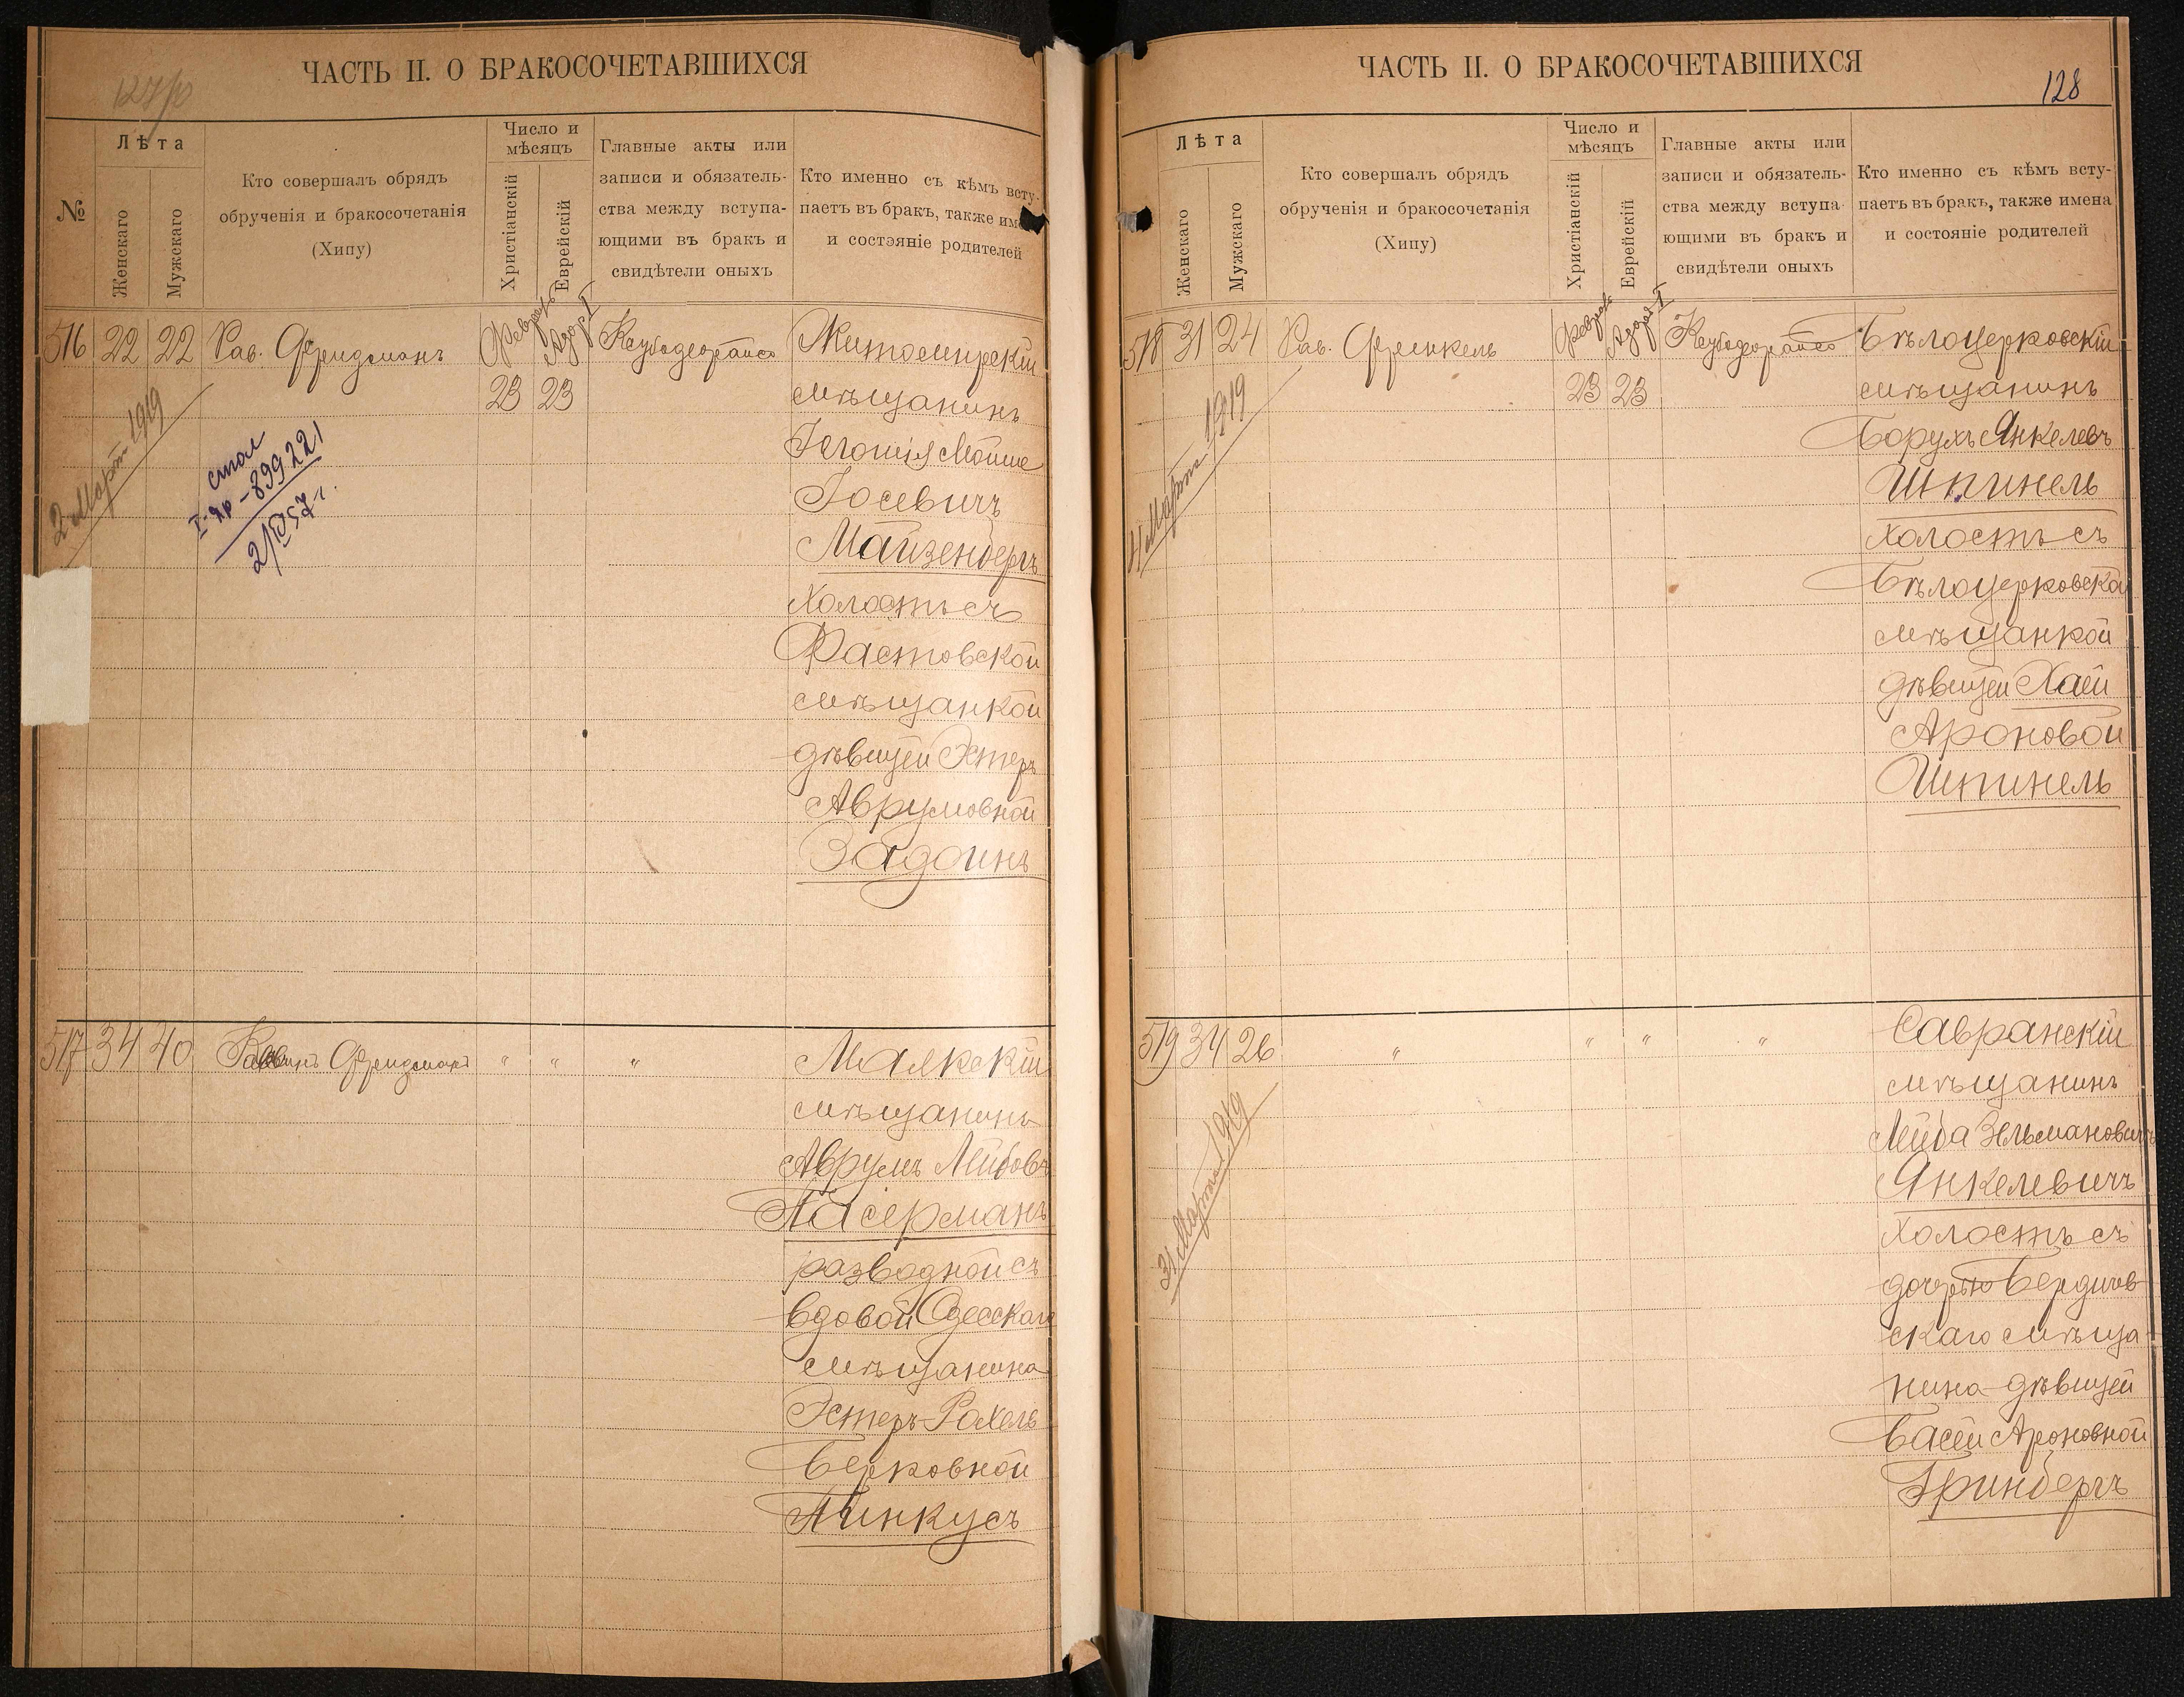 ЧАСТЬ II. О БРАКОСОЧЕТАВШИХСЯ
№
Лѣта
Женскаго
Мужскаго
Кто совершалъ обрядъ
обрученія и бракосочетанія
(Хипу)
Число и
мѣсяцъ
Христіанскій
Еврейскій
Главные акты или
записи и обязатель-
ства между вступа-
ющими въ бракъ и
свидѣтели оныхъ
Кто именно съ кѣмъ всту-
паетъ въ бракъ, также
и состояніе родителей
516 22 22 Рав. Фридманъ
Февраль
23 23
Житомирскій
мѣщанинъ
Мойше
Іосевичъ
Майзенбергъ
Холостъ съ
Фастовской
мѣщанкой
дѣвицей Эстеръ
Аврумовной
Задоинъ
2 Март 1919
стол
I-яр-899221
2/IV 57 г.
517 34 40 Фридманъ " " "
мѣщанинъ
Аврумъ Лейбовъ
Пасерманъ
разводной съ
вдовой Одесскаго
мѣщанина
Эстеръ-Рахель
Берковной
Пинкусъ
ЧАСТЬ II. О БРАКОСОЧЕТАВШИХСЯ
128
Лѣта
Женскаго
Мужскаго
Кто совершалъ обрядъ
обрученія и бракосочетанія
(Хипу)
Число и
мѣсяцъ
Христіанскій
Еврейскій
Главные акты или
записи и обязатель-
ства между вступа-
ющими въ бракъ и
свидѣтели оныхъ
Кто именно съ кѣмъ всту-
паетъ въ бракъ, также имена
и состояніе родителей
518 31 24 Рав. Френкель
Февраль
23 23
Бѣлоцерковскій
мѣщанинъ
Борухъ Янкелевъ
Шпинель
холостъ съ
Бѣлоцерковской
мѣщанкой
дѣвицей Хаей
Ароновой
Шпинель
Марта 1919
519 34 26 " " " "
Савранскій
мѣщанинъ
Лейба Зельмановичъ
Янкелевичъ
холостъ съ
дочерью Бердичев
скаго мѣща-
нина дѣвицей
Басей Ароновной
Гринбергъ
31 Марта 1919